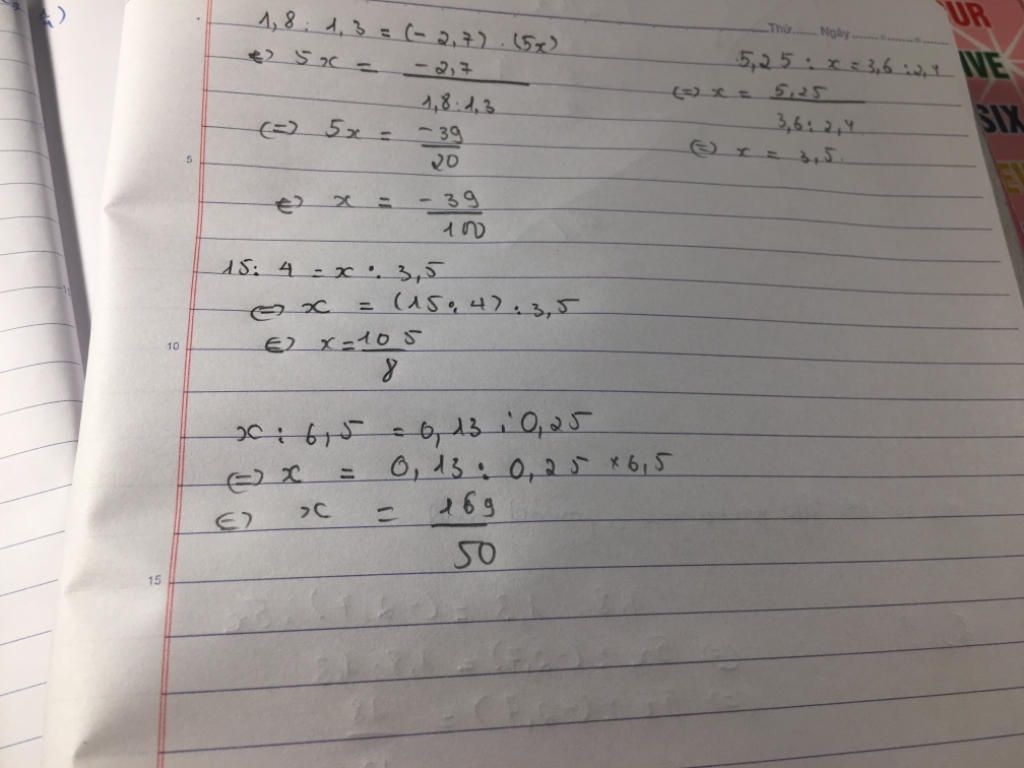 1,8 : 1,3 = (-2,7) . (5x)
⇔ 5x = -2,7
1,8:1,3
⇔ 5x = -39
20
⇔ x = -39
100
Thứ Ngày
5,25 : x = 3,6 : 2,4
⇔ x = 5,25
3,6 : 2,4
⇔ x = 3,5.
5
15 : 4 = x : 3,5
⇔ x = (15 : 4) : 3,5
⇔ x = 105
8
10
x : 6,5 = 0,13 : 0,25
⇔ x = 0,13 : 0,25 × 6,5
⇔ x = 169
50
15
UR
IVE
SIX